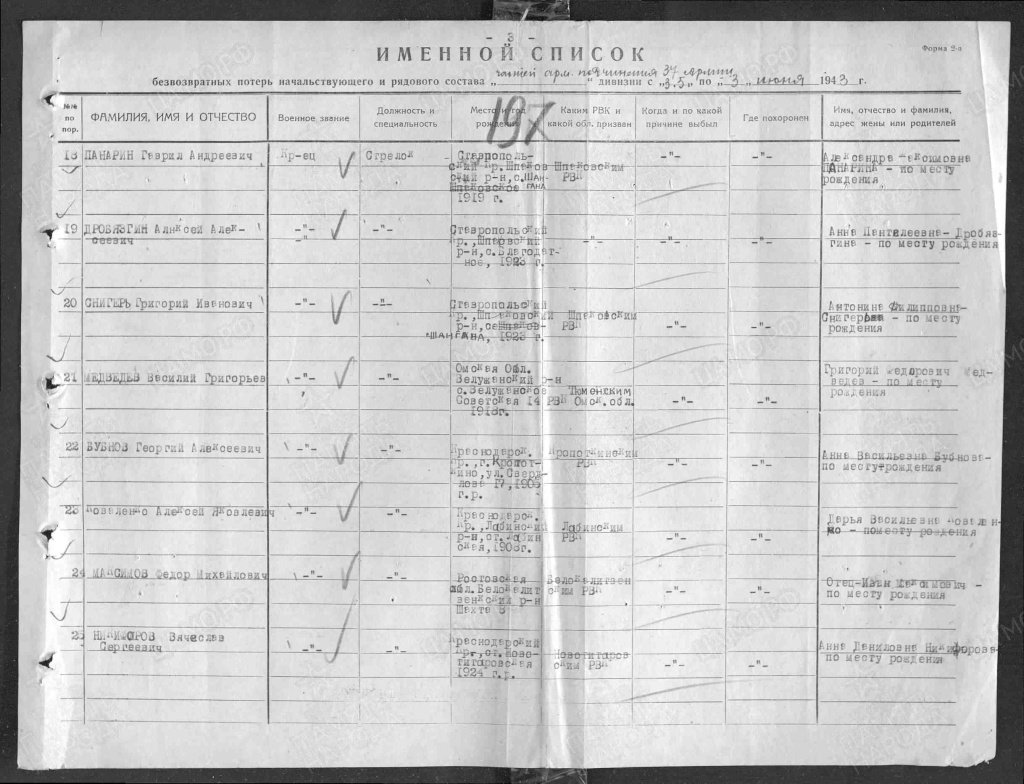 - 3 -
Форма 2-а
ИМЕННОЙ СПИСОК
безвозвратных потерь начальствующего и рядового состава „ 37 армии “ дивизии с „3.5“ по „3“ июня 1943 г.
197
№№ по пор.
ФАМИЛИЯ, ИМЯ И ОТЧЕСТВО
Военное звание
Должность и специальность
Место и год рождения
Каким РВК и какой обл. призван
Когда и по какой причине выбыл
Где похоронен
Имя, отчество и фамилия, адрес жены или родителей
18 ПАНАРИН Гаврил Андреевич Кр-ец Стрелок
Ставрополь-
ский Кр. Шпаков
ский р-н, с. ШАН-
Шпаковское ГАНА
1919 г.
Шпаковским
РВК
-"- -"-
Александра
ПАНАРИНА - по месту
рождения
19 ДРОБЯЗГИН Алнксей Алек-
сеевич
-"- -"-
-"-
Ставропольский
Кр., Шпаовский
р-н, с. Благодат-
ное, 1923 г.
-"- -"- -"-
Анна Пантелеевна- Дробяз-
гина - по месту рождения
20 СНИГЕРЬ Григорий Иванович -"- -"-
Ставропольский
Кр., Шпаковский
р-н,
ШАНГАНА, 1923 г.
Шпаковским
РВК
-"- -"-
Антонина Филипповна-
Снигерь - по месту
рождения
21 МЕДВЕДЕВ Василий Григорьев -"- -"-
Омская Обл.
Велужанский р-н
с. Велужанское
Советская 14
1918г.
Тюменским
РВК Омск. обл.
-"- -"-
Григорий Федорович Мед-
ведев - по месту
рождения
22 БУБНОВ Георгий Алексеевич -"- -"-
Краснодарск.
Кр., г. Кропот-
кино, ул. Сверд-
лова 17, 1905
г.р.
Кропоткинским
РВК
-"- -"-
Анна Васильевна Бубнова-
по месту рождения
23 Коваленко Алексей Яковлевич -"- -"-
Краснодарск.
Кр., Лабинский
р-н, ст. Лабин
ская, 1908г.
Лабинским
РВК
-"- -"-
Дарья Васильевна Ковален-
ко - поместу рождения
24 МАКСИМОВ Федор Михайлович -"- -"-
Ростовская
обл. Белокалит
венский р-н
Шахта 8
Белокалитвен
ским РВК
-"- -"-
Отец-Иван Максимович -
по месту рождения
25 НИКИФОРОВ Вячеслав
Сергеевич
-"- -"-
Краснодарский
Кр., ст. Ново-
титаровская
1924 г.р.
Новотитаров
ским РВК
-"- -"-
Анна Даниловна Никифорова-
по месту рождения